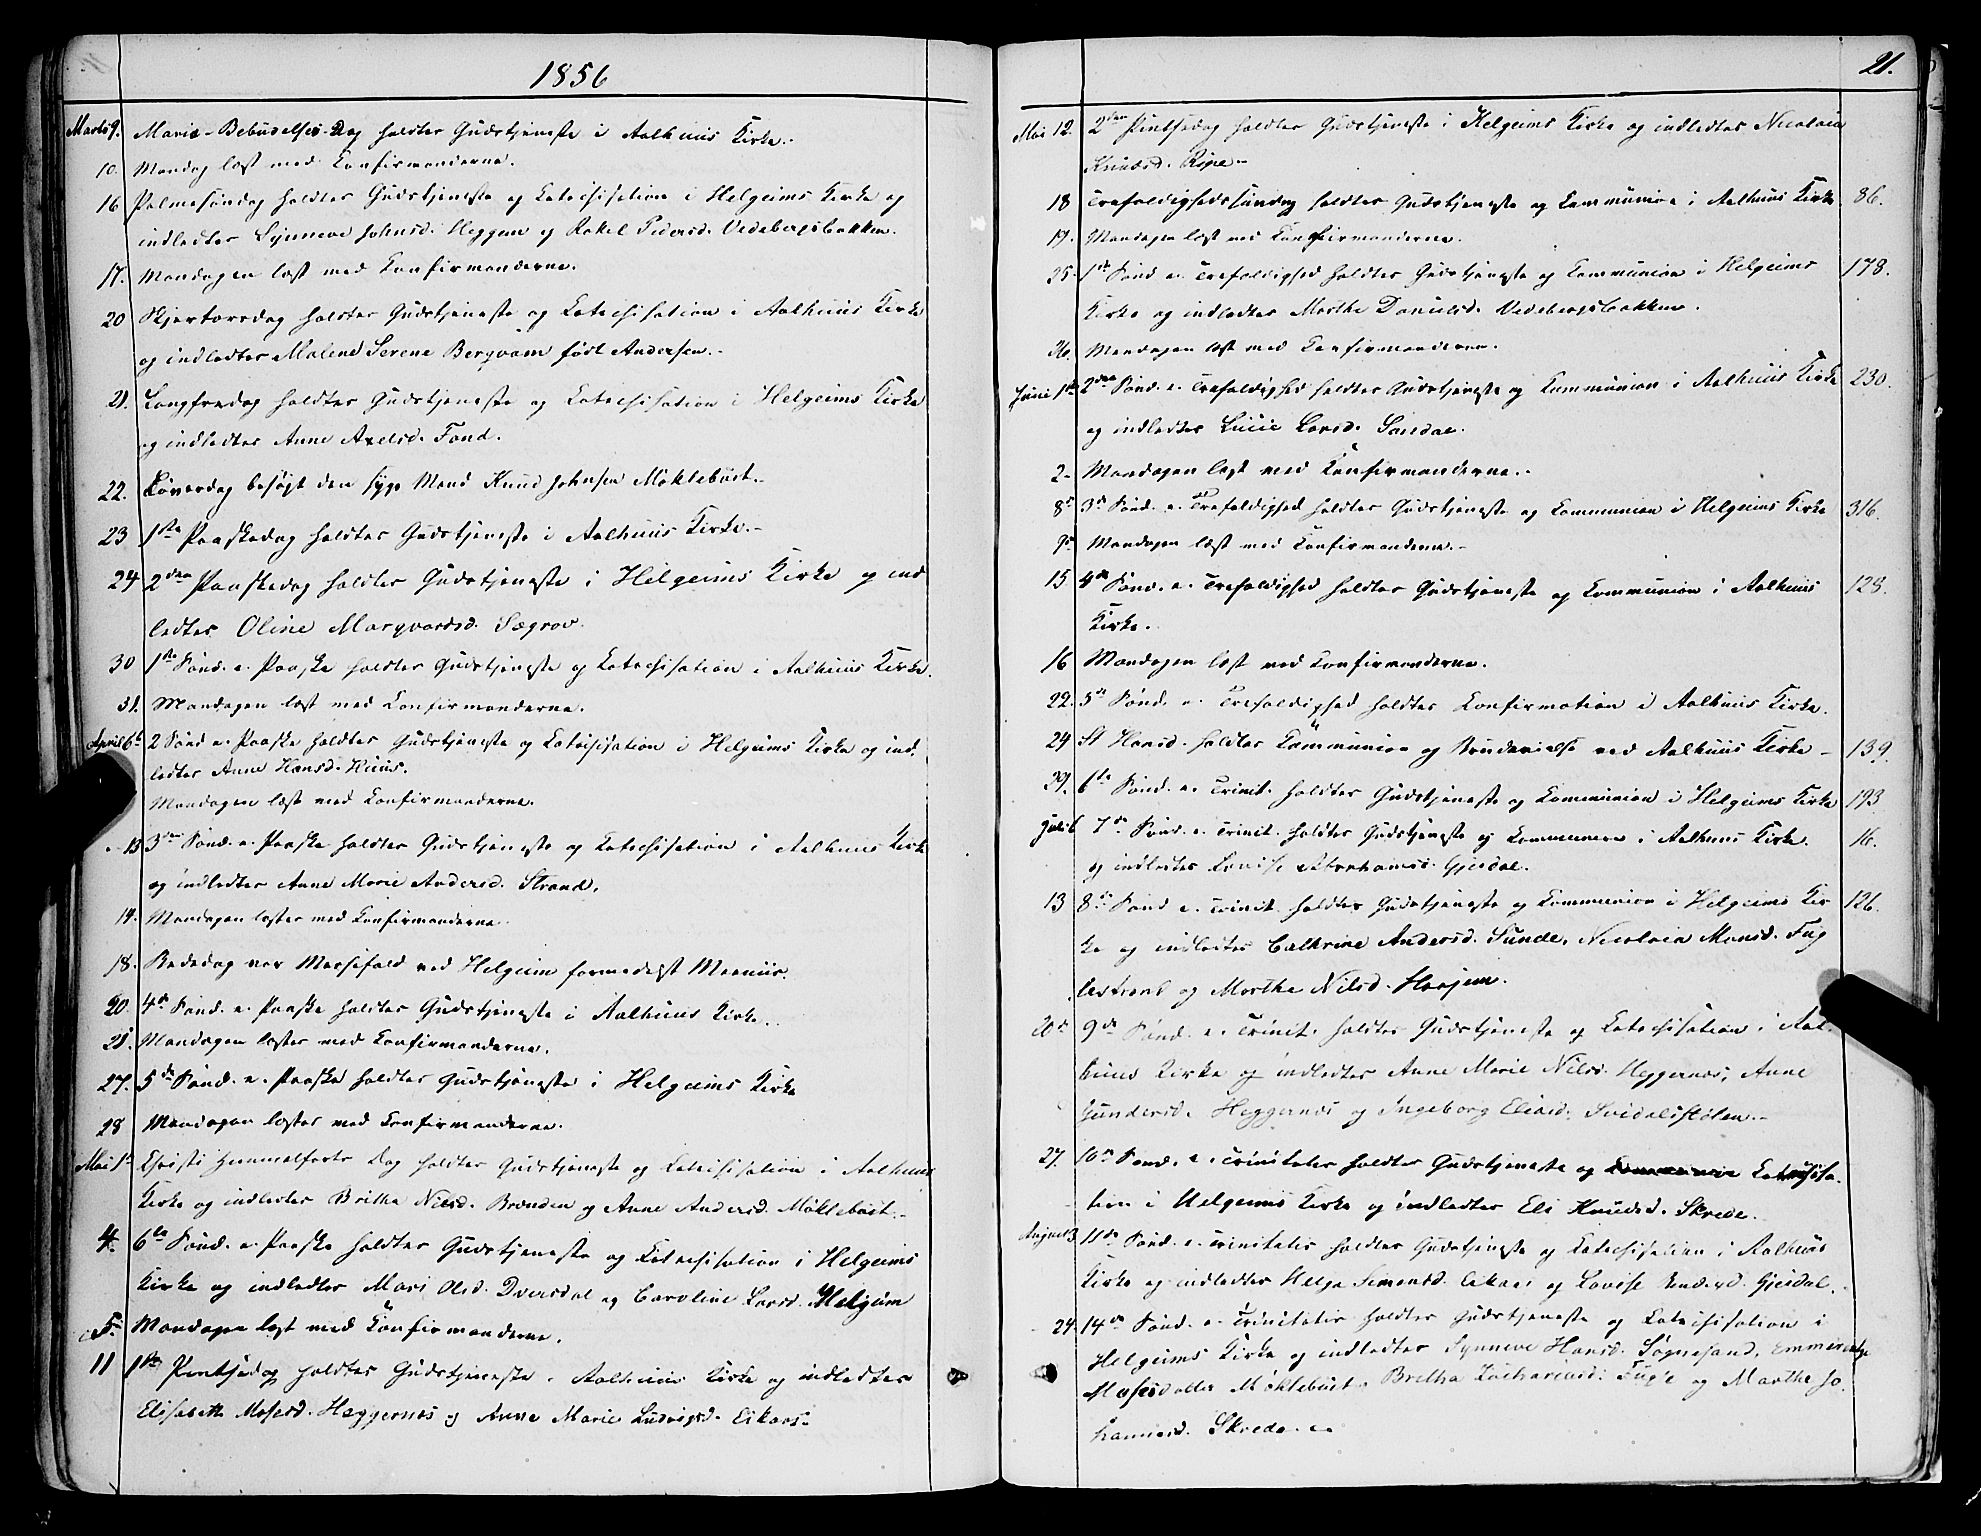 1856
Marts 9. Mariæ-Bebudelses-Dag holdtes Gudstjeneste i Aalhuus Kirke.-
10. Mandag læst med Konfirmanderne.
16 Palmesøndag holdtes Gudstjeneste og Katechisation i Helgeims Kirke og
indledtes Synneve Johnsd. Heggem og Rakel Pedersd. Vedebergsbakken.
17. Mandagen læst med Konfirmanderne.
20 Skjertorsdag holdtes Gudstjeneste og Katechisation i Aalhuus Kirke
og indledtes Malene Serene Bergvam født Andersen.-
21. Langfredag holdtes Gudstjeneste og Katechisation i Helgeims Kirke
og indledtes Anne Axelsd. Fond.
22. Løverdag besøgt den syge Mand Knud Johnsen Møklebust.-
23 1ste Paaskedag holdtes Gudstjeneste i Aalhuus Kirke.-
24 2den Paaskedag holdtes Gudstjeneste i Helgeims Kirke og ind
ledtes Oline Marqvardsd. Sægrov.
30 1ste Sønd. e. Paaske holdtes Gudstjeneste og Katechisation i Aalhuus Kirke.
31. Mandagen læst med Konfirmanderne.
April 6te 2 Sønd e. Paaske holdtes Gudstjeneste og Katechisation i Helgeims Kirke og ind,
ledtes Anne Hansd. Huus.
Mandagen læst med Konfirmanderne.
13 3die Sønd. e. Paaske holdtes Gudstjeneste og Katechisation i Aalhuus Kirke
og indledtes Anne Marie Andersd. Strand.
14. Mandagen læstes med Konfirmanderne
18. Bededag var Messefald ved Helgeim formedelst
20. 4de Sønd. e. Paaske holdtes Gudstjeneste i Aalhuus Kirke.
21. Mandagen læstes med Konfirmanderne.
27. 5de Sønd. e. Paaske holdtes Gudstjeneste i Helgeims Kirke
28 Mandagen læstes med Konfirmanderne.
Mai 1te Christi Himmelfarts Dag holdtes Gudstjeneste og Katechisation i Aalhuus
Kirke og indledtes Britha Nilsd. Brænden og Anne Andersd. Møklebust.-
4. 6te Sønd. e. Paaske holdtes Gudstjeneste og Katechisation i Helgeims
Kirke og indledtes Mari Olsd. Dversdal og Caroline Larsd. Helgeim
5. Mandagen læst med Konfirmanderne.
11 1ste Pintsedag holdtes Gudstjeneste i Aalhuus Kirke og indledtes
Elisabeth Mosesd. Heggernæs og Anne Marie Ludvigsd. Eikaas.
21.
Mai 12. 2den Pintsedag holdtes Gudstjeneste i Helgeims Kirke og indledtes Nicolaia
Knudsd. Ripe-
18 Trefoldighedssøndag holdtes Gudstjeneste og Kommunion i Aalhuus Kirke 86.
19. Mandagen læst med Konfirmanderne.
25- 1ste Sønd e. Trefoldighed holdtes Gudstjeneste og Kommunion i Helgeims 178.
Kirke og indledtes Marthe Danielsd. Vedebergsbakken.
26. Mandagen læst med Konfirmanderne.
Juni 1te 2den Sønd. e. Trefoldighed holdtes Gudstjeneste og Kommunion i Aalhuus Kirke 230.
og indledtes Lucie Larsd. Sandal.
2- Mandagen læst med Konfirmanderne.-
8de 3de Sønd. e. Trefoldighed holdtes Gudstjeneste og Kommunion i Helgeims Kirke 316.
9de Mandagen læst med Konfirmanderne.-
15 4de Sønd. e. Trefoldighed holdtes Gudstjeneste og Kommunion i Aalhuus 128.
Kirke.
16 Mandagen læst med Konfirmanderne.
22. 5te Sønd. e. Trefoldighed holdtes Konfirmation i Aalhuus Kirke.
24 St Hansd. holdtes Kommunion og Brudevielse ved Aalhuus Kirke - 139.
29. 6te Sønd. e. Trinit. holdtes Gudstjeneste og Kommunion i Helgeims Kirke 193
Juli 6 7de Sønd. e. Trinit. holdtes Gudstjeneste og Kommunion i Aalhuus Kirke. 16.
og indledtes Lovise Abrahamsd. Gjesdal.
13 8de Sønd e. Trinit. holdtes Gudstjeneste og Kommunion i Helgeims Kir 126.
ke og indledtes Cathrine Andersd. Sunde, Nicolaia Monsd. Fug
lestrand og Marthe Nilsd. Haajem.
20de 9de Sønd. e. Trinit. holdtes Gudstjeneste og Katechisation i Aal-
huus Kirke og indledtes Anne Marie Nilsd. Heggernæs, Anne
Gundersd. Heggernæs og Ingeborg Eliasd. Svidalsstølen.-
27. 10de Sønd. e. Trinitatis holdtes Gudstjeneste og Kommunion Katechisa-
tion i Helgeims Kirke og indledtes Eli Knudsd. Skrede.
August 3 11te Sønd. e. Trinitatis holdtes Gudstjeneste og Katechisation i Aalhuus
Kirke og indledtes Helga Simensd. Eikaas og Lovise Gjesdal.
24. 14de Sønd. e. Trinitatis holdtes Gudstjeneste og Katechisation i
Helgeims Kirke og indledtes Synneve Hansd. Søgnesand, Emmerentze
Mosesdatter Møklebust, Britha Zachariasd. Fugle og Marthe Jo-
hannesd. Skrede.